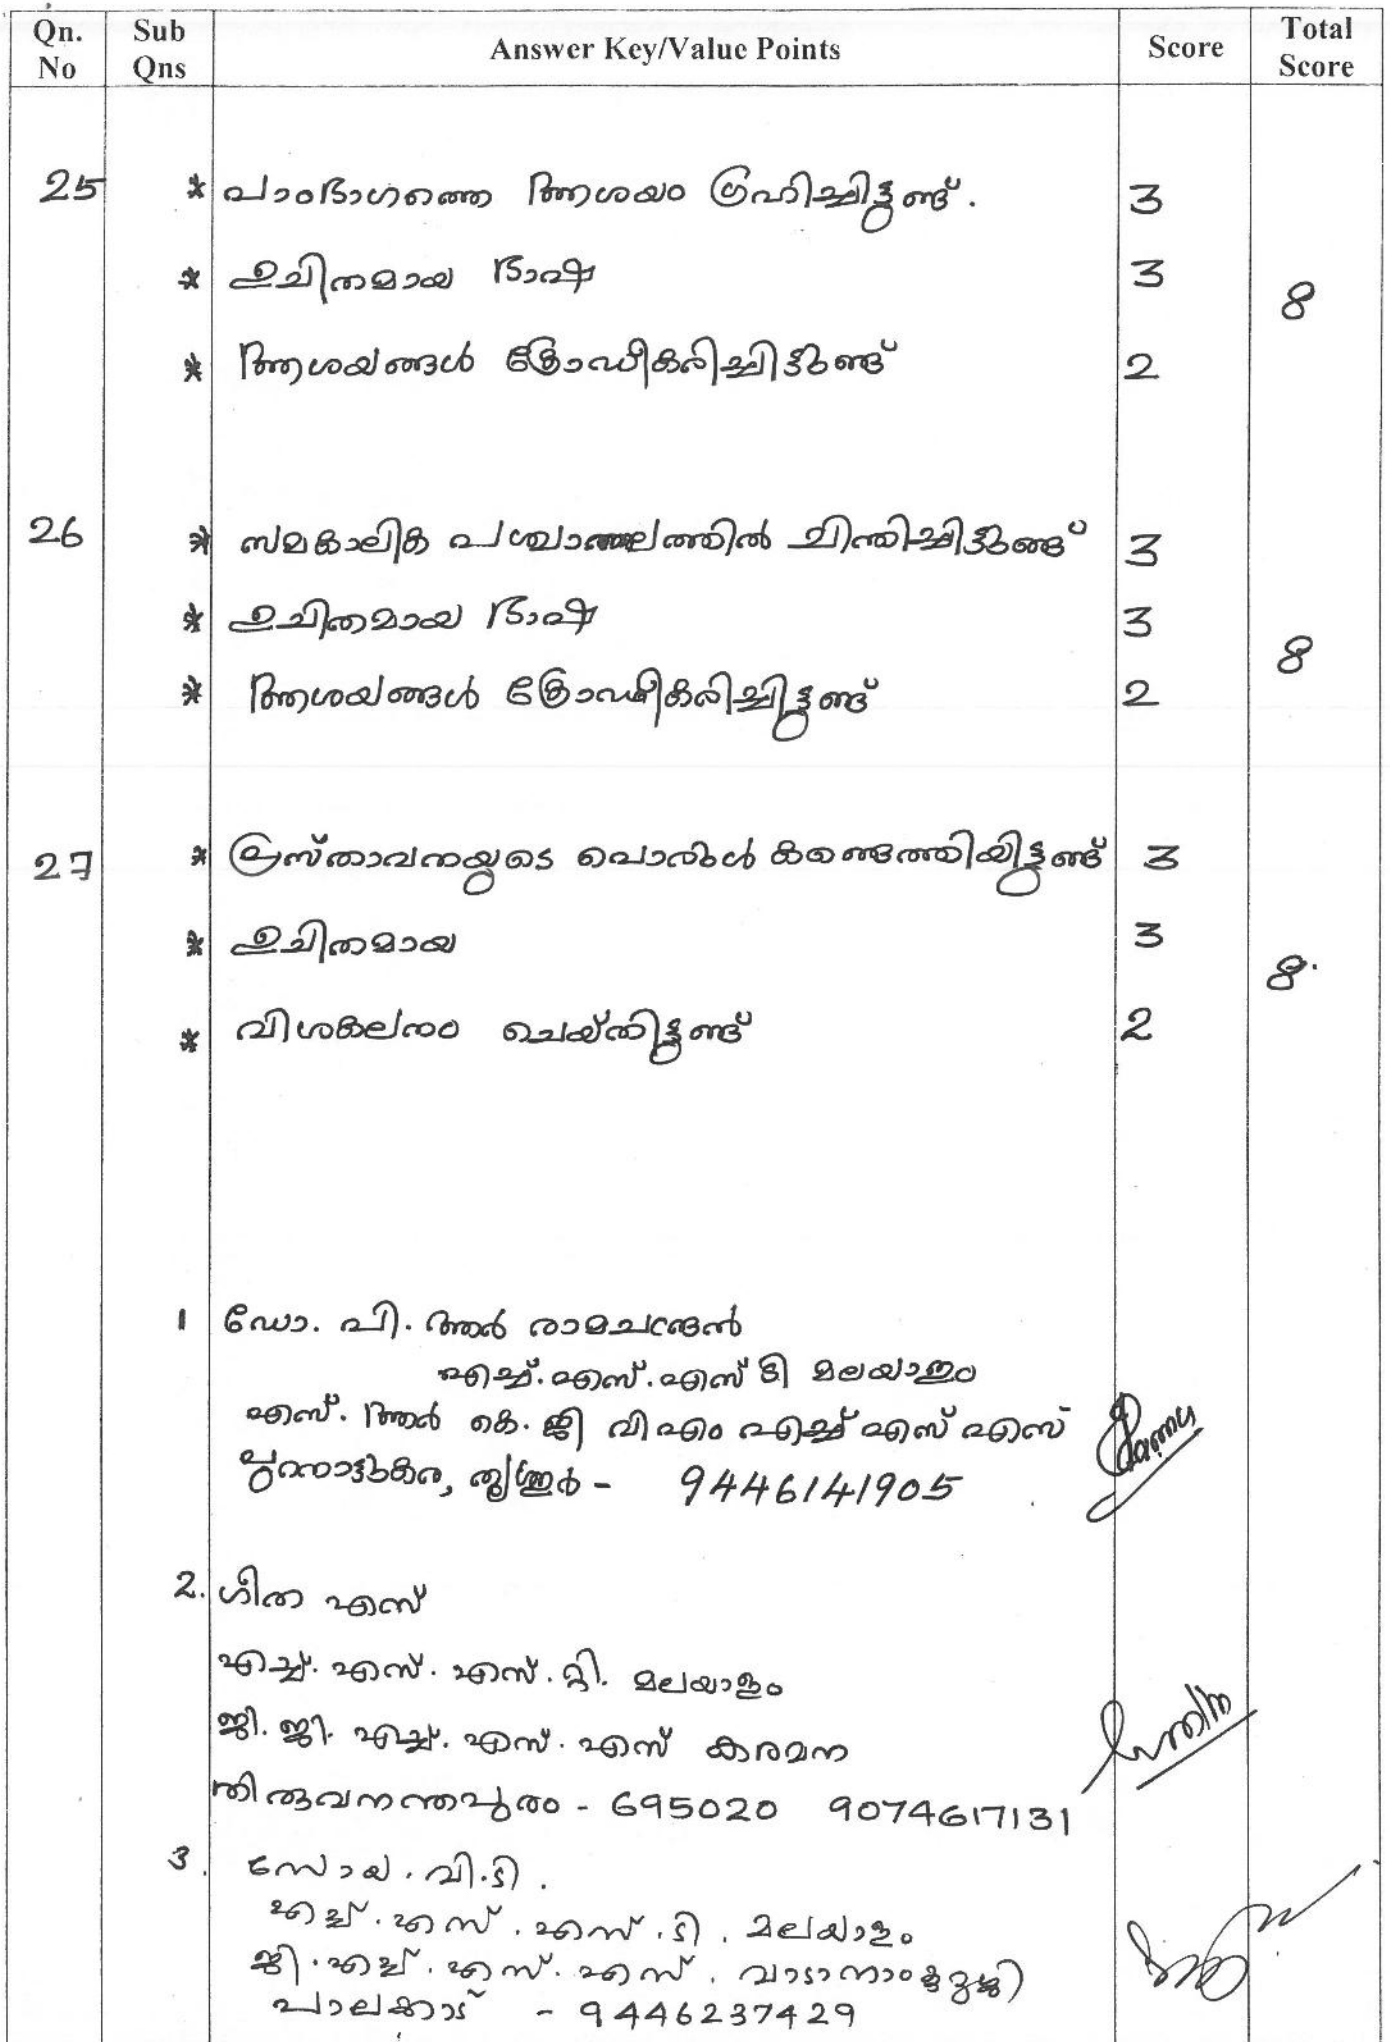 Qn. No Sub Qns Answer Key/Value Points Score Total Score
25 * പാഠഭാഗത്തെ ആശയം ഗ്രഹിച്ചിട്ടുണ്ട്. 3
* ഉചിതമായ ഭാഷ 3
8
* ആശയങ്ങൾ ക്രോഡീകരിച്ചിട്ടുണ്ട് 2
26 * സമകാലിക പശ്ചാത്തലത്തിൽ ചിന്തിച്ചിട്ടുണ്ട് 3
* ഉചിതമായ ഭാഷ 3
8
* ആശയങ്ങൾ ക്രോഡീകരിച്ചിട്ടുണ്ട് 2
27 * പ്രസ്താവനയുടെ പൊരുൾ കണ്ടെത്തിയിട്ടുണ്ട് 3
* ഉചിതമായ 3
8.
* വിശകലനം ചെയ്തിട്ടുണ്ട് 2
1 ഡോ. പി. ആർ രാമചന്ദ്രൻ
എച്ച്. എസ്. എസ് ടി മലയാളം
എസ്. ആർ കെ. ജി വി എം എച്ച് എസ് എസ്
പുറനാട്ടുകര, തൃശ്ശൂർ - 9446141905
2. ഗീത എസ്
എച്ച്. എസ്. എസ്. റ്റി. മലയാളം
ജി. ജി. എച്ച്. എസ്. എസ് കരമന
തിരുവനന്തപുരം - 695020 9074617131
3. സോയ. വി. ടി.
എച്ച്. എസ്. എസ്. ടി. മലയാളം
ജി. എച്ച്. എസ്. എസ്. വാടാനാംകുറുശ്ശി
പാലക്കാട് - 9446237429